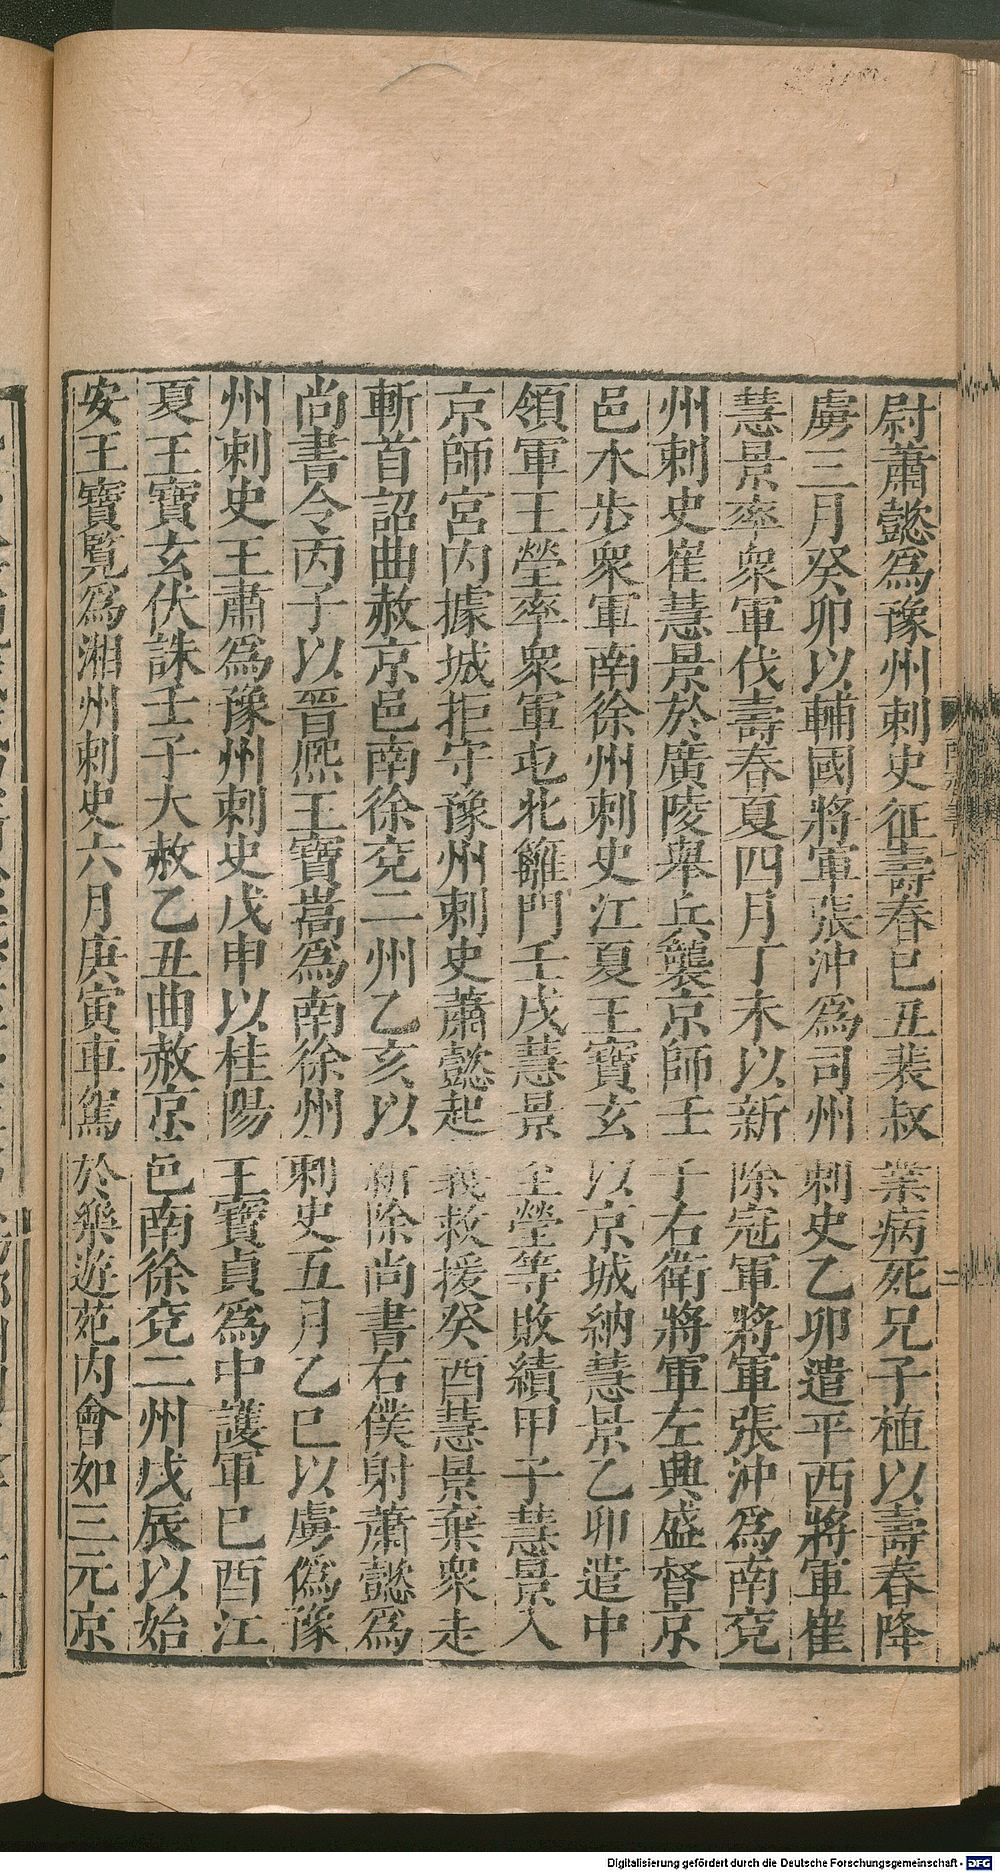 尉蕭懿爲豫州刺史征壽春己丑裴叔業病死兄子植以壽春降
虜三月癸卯以輔國將軍張沖爲司州刺史乙卯遣平西將軍崔
慧景率衆軍伐壽春夏四月丁未以新除冠軍將軍張沖爲南兗
州刺史崔慧景於廣陵舉兵襲京師壬子右衛將軍左興盛督京
邑水步衆軍南徐州刺史江夏王寶玄以京城納慧景乙卯遣中
領軍王瑩率衆軍屯北籬門壬戌慧景至瑩等敗績甲子慧景入
京師宮内據城拒守豫州刺史蕭懿起義救援癸酉慧景棄衆走
斬首詔曲赦京邑南徐兗二州乙亥以新除尚書右僕射蕭懿爲
尚書令丙子以晉熈王寶嵩爲南徐州刺史五月乙巳以虜僞豫
州刺史王肅爲豫州刺史戊申以桂陽王寶貞爲中護軍己酉江
夏王寶玄伏誅壬子大赦乙丑曲赦京邑南徐兗二州戊辰以始
安王寶覧爲湘州刺史六月庚寅車駕於樂遊苑内會如三元京
Digitalisierung gefördert durch die Deutsche Forschungsgemeinschaft - DFG